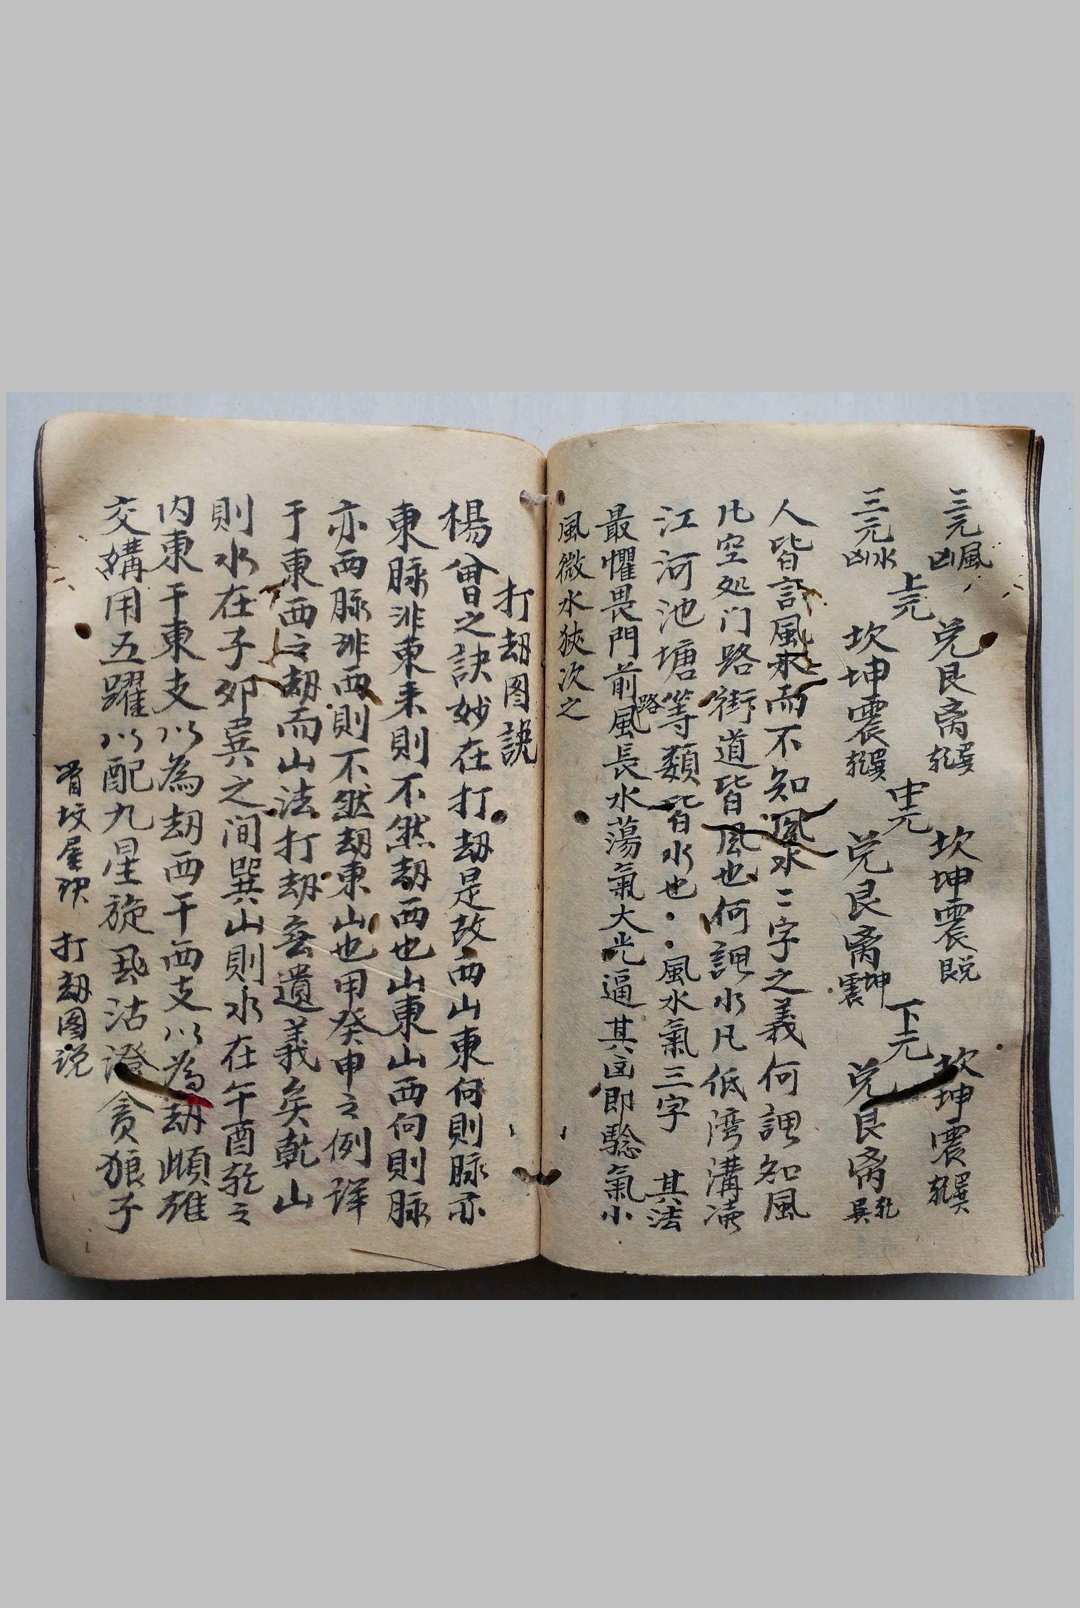 三元風凶
兌艮离乾巽
坎坤震艮兌
坎坤震乾巽
上元
中元
下元
三元水凶
坎坤震乾巽
兌艮离震坤
兌艮离巽乾
人皆言風水而不知風水二字之義何謂知風
凡空処门路街道皆風也何謂水凡低湾溝
江河池塘等類皆水也風水氣三字 其法
最懼畏門前風路長水蕩氣大光逼其凶即驗氣小
風微水狹次之
打劫图訣
楊曾之訣妙在打劫是故西山東向則脉亦
東脉非東来則不然劫西也山東山西向則脉
亦西脉非西則不然劫東山也甲癸申之例詳
于東西之劫而山法打劫無遺義矣乾山
則水在子卯巽之间巽山則水在午酉乾之
内東干東支以為劫西干西支以為劫顛雄
交媾用五躍以配九星旋沾澄貪狼子
打劫图說